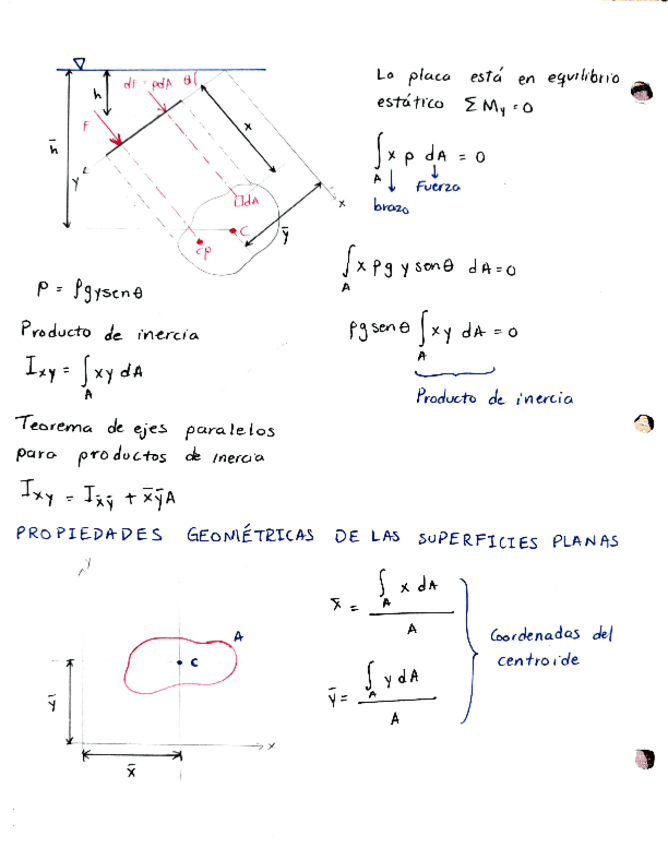 La placa está en equilibrio
estático ΣMy = 0
dF = pdA θ
h
F
h̄
x
y
x
dA
C
ȳ
cp
∫A x p dA = 0
Fuerza
brazo
∫A x ρg y senθ dA = 0
p = ρgysenθ
Producto de inercia
Ixy = ∫A xy dA
ρg senθ ∫A xy dA = 0
Producto de inercia
Teorema de ejes paralelos
para productos de inercia
Ixy = Ix̄ȳ + x̄ȳA
PROPIEDADES GEOMÉTRICAS DE LAS SUPERFICIES PLANAS
y
A
C
ȳ
x
x̄
x̄ = ∫A x dA / A
ȳ = ∫A y dA / A
Coordenadas del
centroide